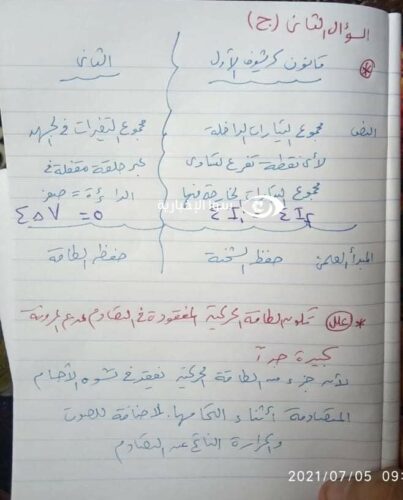 السؤال الثاني (ج)
* قانون كرشوف الأول
الثاني
النص
مجموع التيارات الداخلة
لأي نقطة تفرع تساوي
مجموع التيارات الخارجة منها
مجموع التغيرات في الجهد
عبر حلقة مقفلة في
الدائرة = صفر
Σ I₁ Σ I₂
Σ Δ V = 0
الإخبارية
المبدأ العلمي
حفظ الشحنة
حفظ الطاقة
* علل تكون الطاقة الحركية المفقودة في التصادم عديم المرونة
كبيرة جداً
لأنه جزء من الطاقة الحركية يفقد في تشوه الأجسام
المتصادمة أثناء التحامها بالإضافة للصوت
والحرارة الناتج عن التصادم
2021/07/05 09: